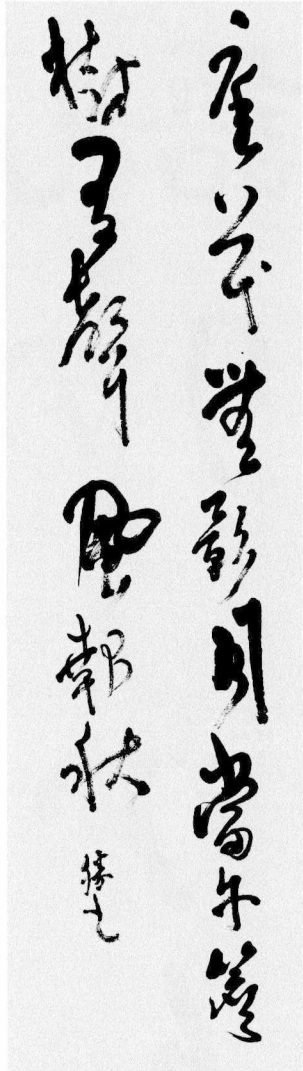 庭無影月當午簷
樹有聲風報秋